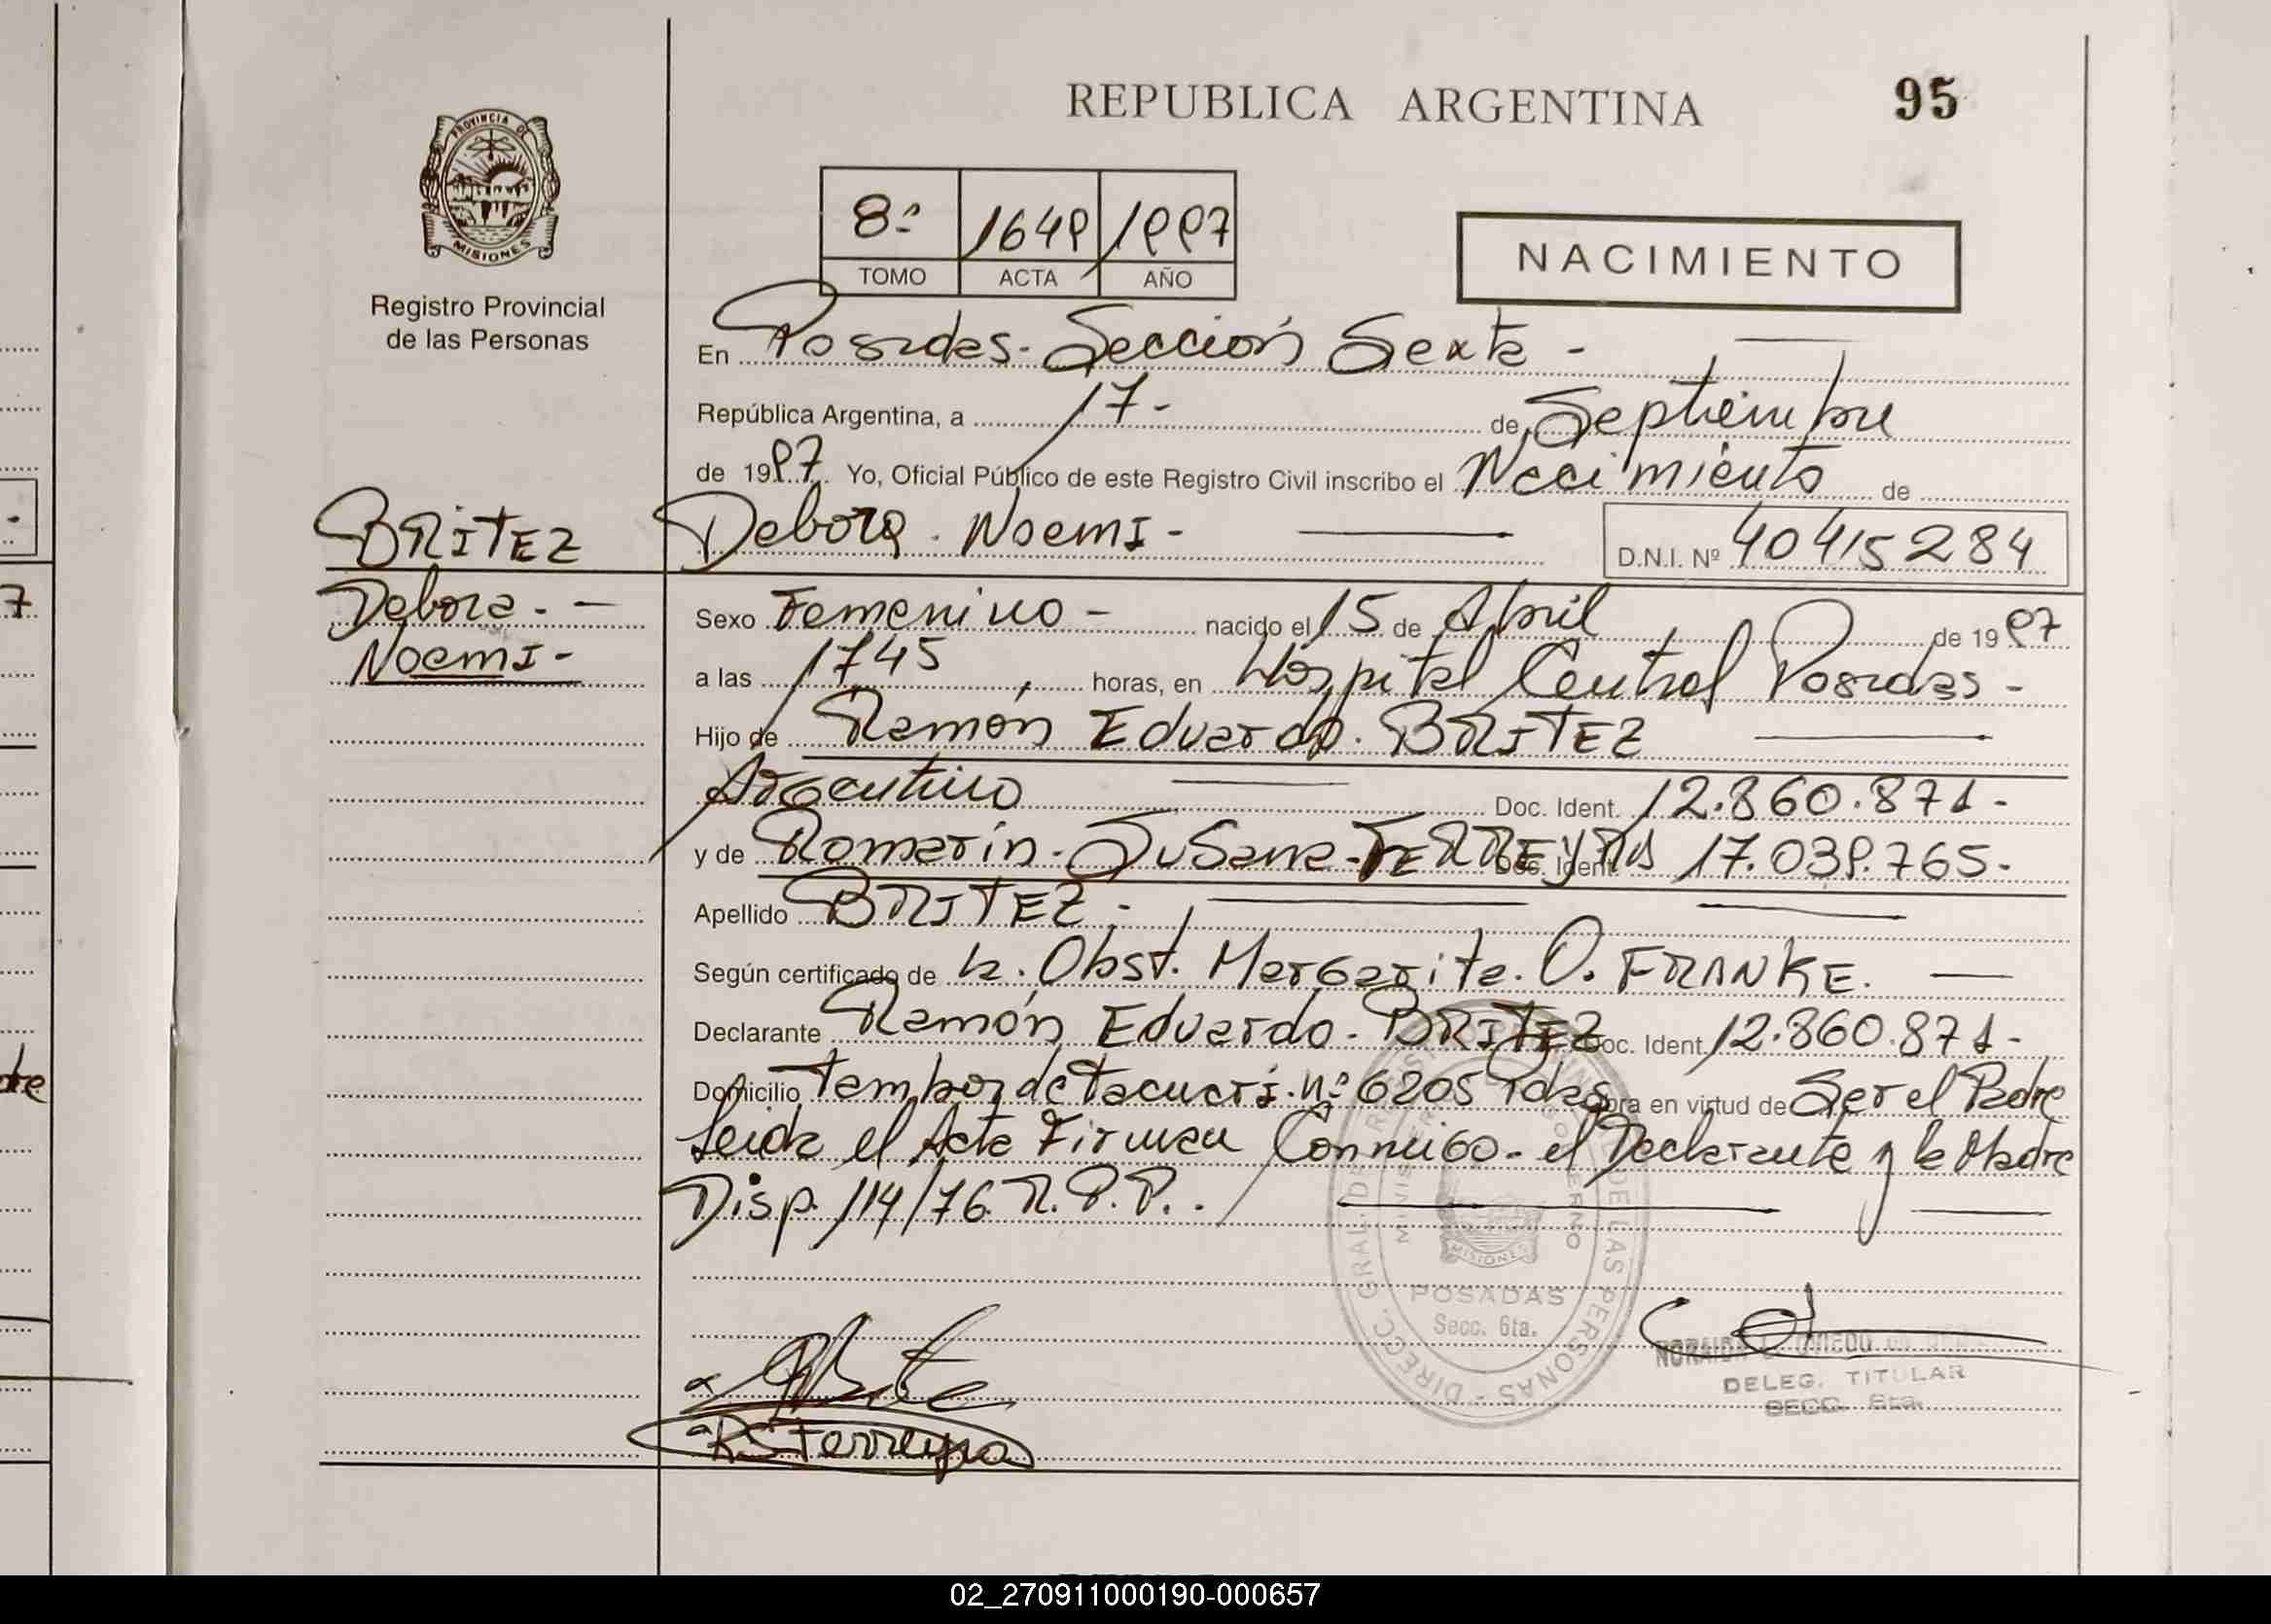 REPUBLICA ARGENTINA
95
PROVINCIA DE
MISIONES
Registro Provincial
de las Personas
8º 1649 1997
TOMO ACTA AÑO
NACIMIENTO
En Posadas - Sección Sexta -
República Argentina, a 17 - de Septiembre
de 1997. Yo, Oficial Público de este Registro Civil inscribo el Nacimiento de
BRITEZ Debora Noemi - D.N.I. Nº 40415284
Debora - Sexo Femenino - nacido el 15 de Abril de 1997
Noemi - a las 1745 horas, en Hospital Central Posadas -
Hijo de Ramón Eduardo BRITEZ
Argentino Doc. Ident. 12.860.871 -
y de Romarin - Susana - FERREYRA Doc. Ident. 17.039.765 -
Apellido BRITEZ -
Según certificado de la Obst. Margarita O. FRANKE.
Declarante Ramón Eduardo - BRITEZ Doc. Ident. 12.860.871 -
Domicilio Tambor de Tacuarí. nº 6205 Pdas Obra en virtud de Ser el Padre
Leida el Acta Firman Conmigo - el Declarante y la Madre
Disp. 114/76. R.P.P..
MINISTERIO GOBIERNO
DIREC. GRAL. DE REGISTRO DE LAS PERSONAS
MISIONES
POSADAS
Secc. 6ta.
OVIEDO
DELEG. TITULAR
SECC. 6ta.
RS Ferreyra
7
dre
02_270911000190-000657